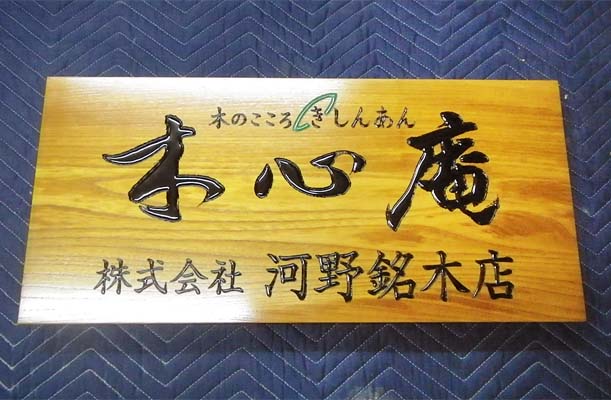 木のこころ きしんあん
木心庵
株式会社 河野銘木店